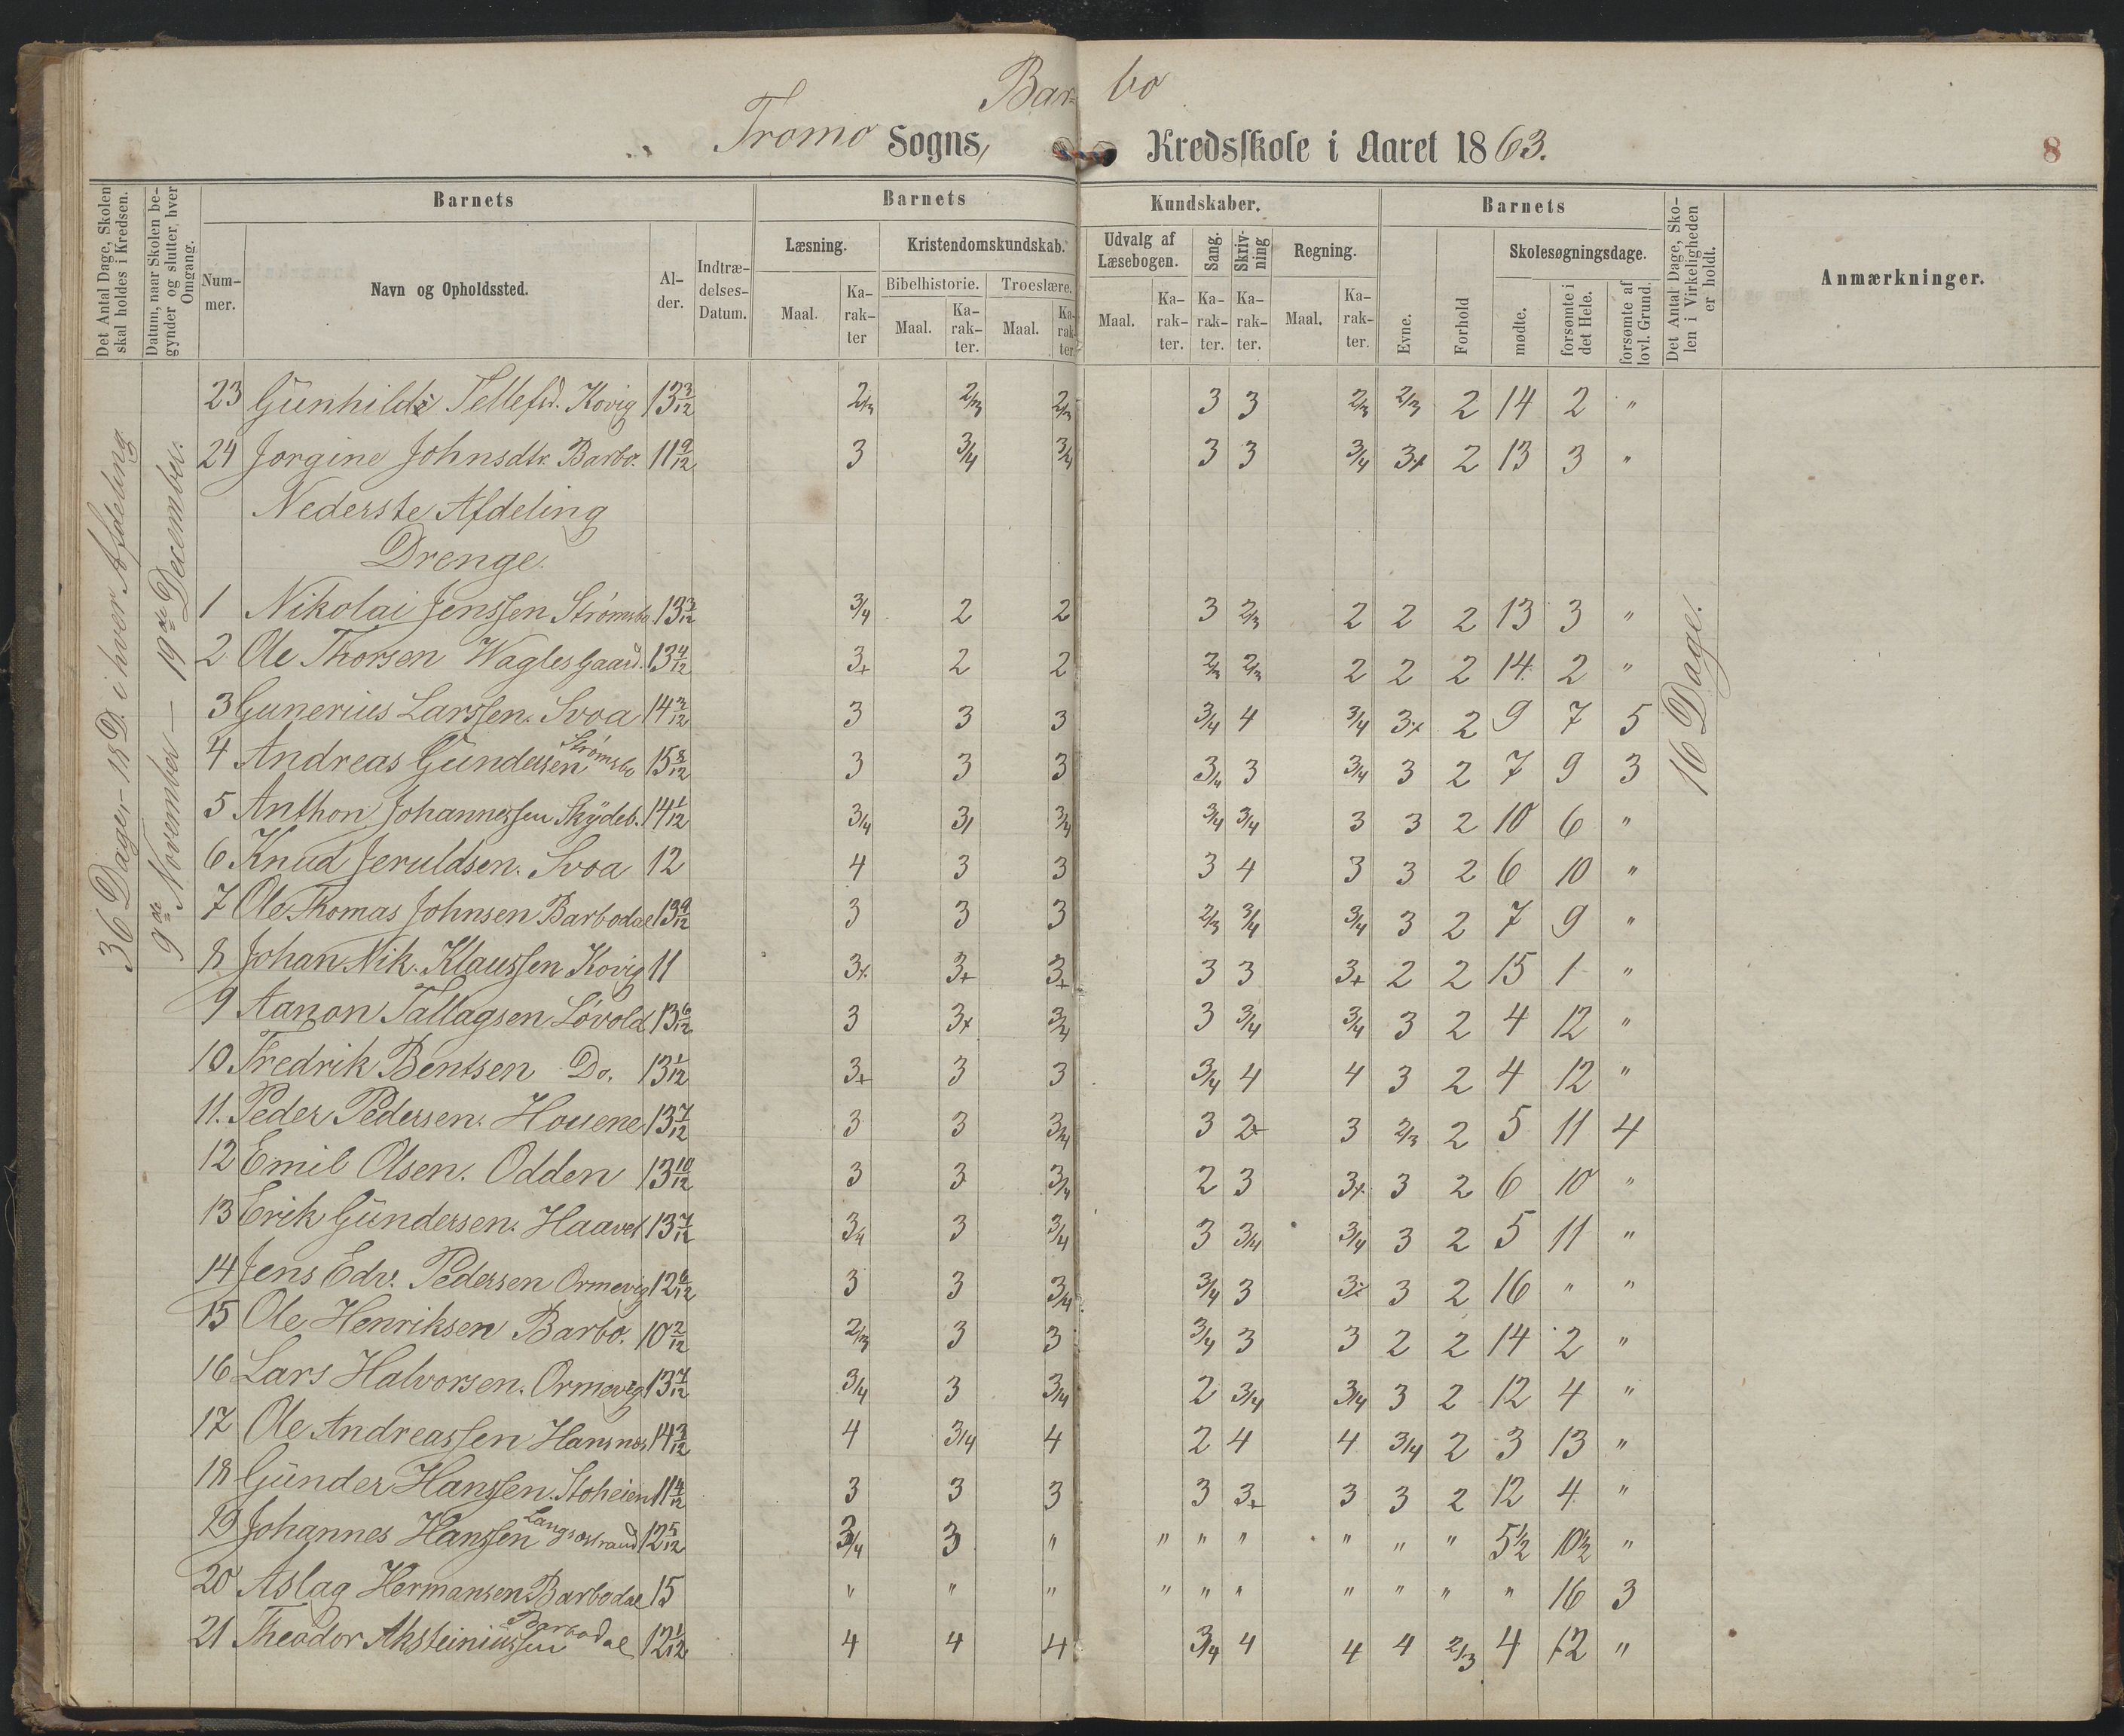 Barbo
Tromø Sogns, Kredsskole i Aaret 1863.
8
Det Antal Dage, Skolen skal holdes i Kredsen.
Datum, naar Skolen begynder og slutter, hver Omgang.
Barnets
Barnets
Kundskaber.
Barnets
Det Antal Dage, Skolen i Virkeligheden er holdt.
Anmærkninger.
Nummer.
Navn og Opholdssted.
Alder.
Indtrædelses-Datum.
Læsning.
Kristendomskundskab.
Udvalg af Læsebogen.
Sang.
Skrivning
Regning.
Skolesøgningsdage.
Bibelhistorie.
Troeslære.
Maal.
Karakter
Maal.
Karakter.
Maal.
Karakter.
Maal.
Karakter.
Karakter.
Karakter.
Maal.
Karakter.
Evne.
Forhold
mødte.
forsømte i det Hele.
forsømte af lovl. Grund.
36 Dager - 18 D. i hver Afdeling.
9de November — 19de December.
16 Dage.
23 Gunhild Tellefsd. Kovig 13 3/12 2/3 2/3 2/3 3 3 2/3 2/3 2 14 2 "
24 Jorgine Johnsdtr. Barbo. 11 9/12 3 3/4 3/4 3 3 3/4 3+ 2 13 3 "
Nederste Afdeling
Drenge.
1 Nikolai Jenssen Strømsbo 13 3/12 3/4 2 2 3 2/3 2 2 2 13 3 "
2 Ole Thorsen Waglesgaard. 13 4/12 3+ 2 2 2/3 2/3 2 2 2 14 2 "
3 Gunerius Larssen. Svoa 14 3/12 3 3 3 3/4 4 3/4 3+ 2 9 7 5
4 Andreas Gundersen Strømsbo 15 8/12 3 3 3 3/4 3 3/4 3 2 7 9 3
5 Anthon Johannessen Skydeb. 14 1/12 3/4 3/ 3/4 3/4 3/4 3 3 2 10 6 "
6 Knud Jeruldsen. Svoa 12 4 3 3 3 4 3 3 2 6 10 "
7 Ole Thomas Johnsen Barbodal 13 9/12 3 3 3 2/3 3/4 3/4 3 2 7 9 "
8 Johan Nik. Klaussen Kovig 11 3+ 3+ 3+ 3 3 3+ 2 2 15 1 "
9 Aanon Tallagsen Løvold 13 6/12 3 3+ 3/4 3 3/4 3/4 3 2 4 12 "
10. Fredrik Bentsen Do. 13 1/12 3+ 3 3 3/4 4 4 3 2 4 12 "
11. Peder Pedersen. Houene 13 7/12 3 3 3/4 3 2+ 3 2/3 2 5 11 4
12 Emil Olsen. Odden 13 10/12 3 3 3/4 2 3 3+ 3 2 6 10 "
13 Erik Gundersen. Haavet 13 7/12 3/4 3 3/4 3 3/4 3/4 3 2 5 11 "
14 Jens Edv. Pedersen Ormevig 12 6/12 3 3 3/4 3/4 3 3+ 3 2 16 " "
15 Ole Henriksen Barbo. 10 2/12 2/3 3 3 3/4 3 3 2 2 14 2 "
16 Lars Halvorsen. Ormevig 13 7/12 3/4 3 3/4 2 3/4 3/4 3 2 12 4 "
17 Ole Andreassen Hansnes 14 3/12 4 3/4 4 2 4 4 3/4 2 3 13 "
18 Gunder Hanssen. Stoheien 11 4/12 3 3 3 3 3+ 3 3 2 12 4 "
19 Johannes Hanssen 12 5/12 3/4 3 " " " " " " " 5½ 10½ "
20 Aslag Hermansen Barbodal 15 " " " " " " " " " " 16 3
21 Theodor Aksteiniussen Barbodal 12 1/12 4 4 4 3/4 4 4 4 2/3 4 12 "